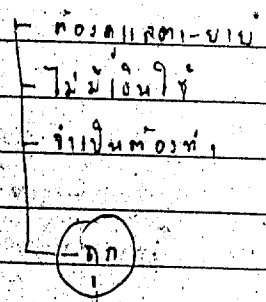 - ต้องดูแลตา-ยาย
- ไม่มีเงินใช้
- จำเป็นต้องทำ
- ถูก